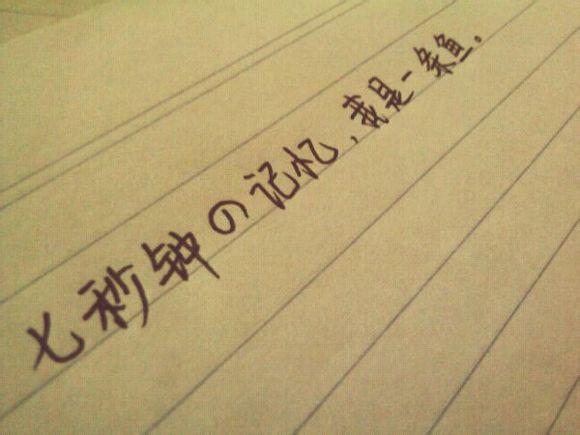 七秒钟の记忆，我是一条鱼。